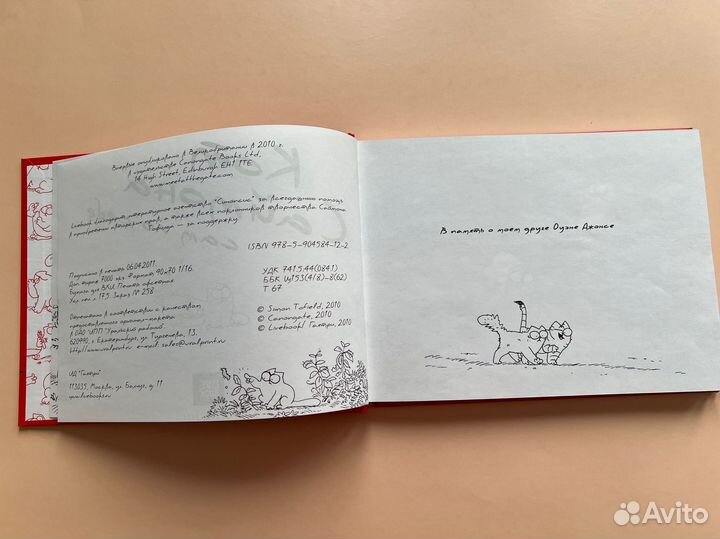 Впервые опубликовано в Великобритании в 2010 г.
в издательстве Canongate Books Ltd,
14 High Street, Edinburgh EH1 1TE
www.meetatthegate.com
Livebook благодарит литературное агентство "Синопсис" за всегдашнюю помощь
в приобретении авторских прав, а также всех поклонников творчества Саймона
Тофилда — за поддержку
ISBN 978-5-904584-12-2
Подписано в печать 06.04.2011.
Доп. тираж 7000 экз. Формат 90×70 1/16.
Бумага для ВХИ. Печать офсетная
Усл. печ. л. 17,5. Заказ № 258
УДК 741.5.44(084.1)
ББК
Т 67
Отпечатано в соответствии с качеством
предоставленного оригинал-макета
в ОАО "ИПП "Уральский рабочий"
620990, г. Екатеринбург, ул. Тургенева, 13.
http://www.uralprint.ru e-mail: sales@uralprint.ru
© Simon Tofield, 2010
© Canongate, 2010
© Livebook/Гаятри, 2010
ИД "Гаятри"
113035, Москва, ул. Балчуг, д. 11
www.livebooks.ru
В память о моем друге Оуэне Джонсе
Avito